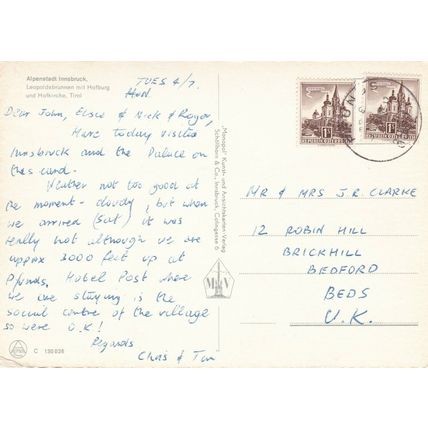 Alpenstadt Innsbruck,
Leopoldsbrunnen mit Hofburg
und Hofkirche, Tirol
TUES 4/7.
Dear John, Elsie & Nick & Roger,
Have today visited
Innsbruck and the Palace on
this card.
Weather not too good at
the moment - cloudy, but when
we arrived (Sat) it was
really hot although we are
approx 3000 feet up at
Pfunds. Hotel Post where
we are staying is the
social centre of the village
so were O.K!
Regards
Chris & Tim
C 130 836
"Monopol" Kunst- und Ansichtskarten-Verlag
Schöllhorn & Co., Innsbruck, Colingasse 6
REPUBLIK ÖSTERREICH
REPUBLIK ÖSTERREICH
MR & MRS J.R. CLARKE
12 ROBIN HILL
BRICKHILL
BEDFORD
BEDS
U.K.